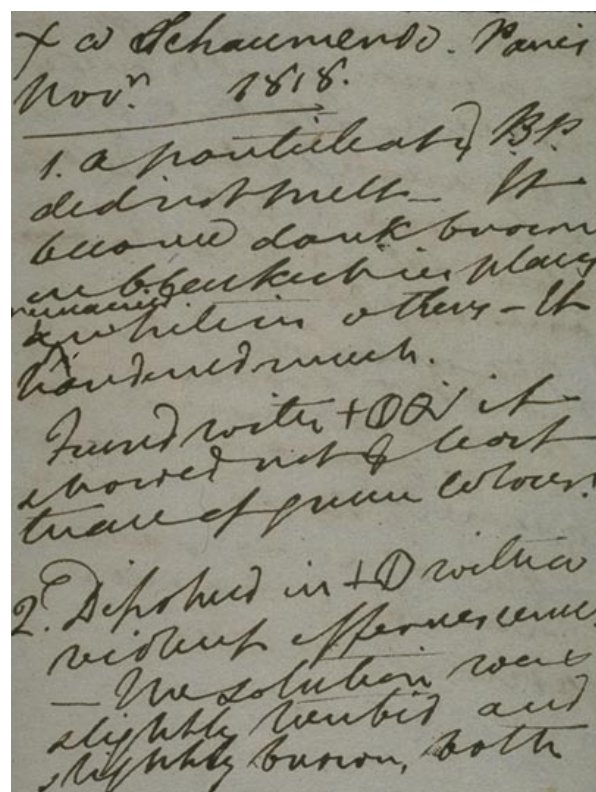 Paris
Novr. 1818.
1. a particle at BP.
did not melt - It
became dark brown
or blackish in places
remained
& white in others - It
hardened much.
Fused with + it
showed not least
trace of green colour.
2. Dissolved in + with a
violent effervescence
- The solution was
slightly turbid and
slightly brown, both